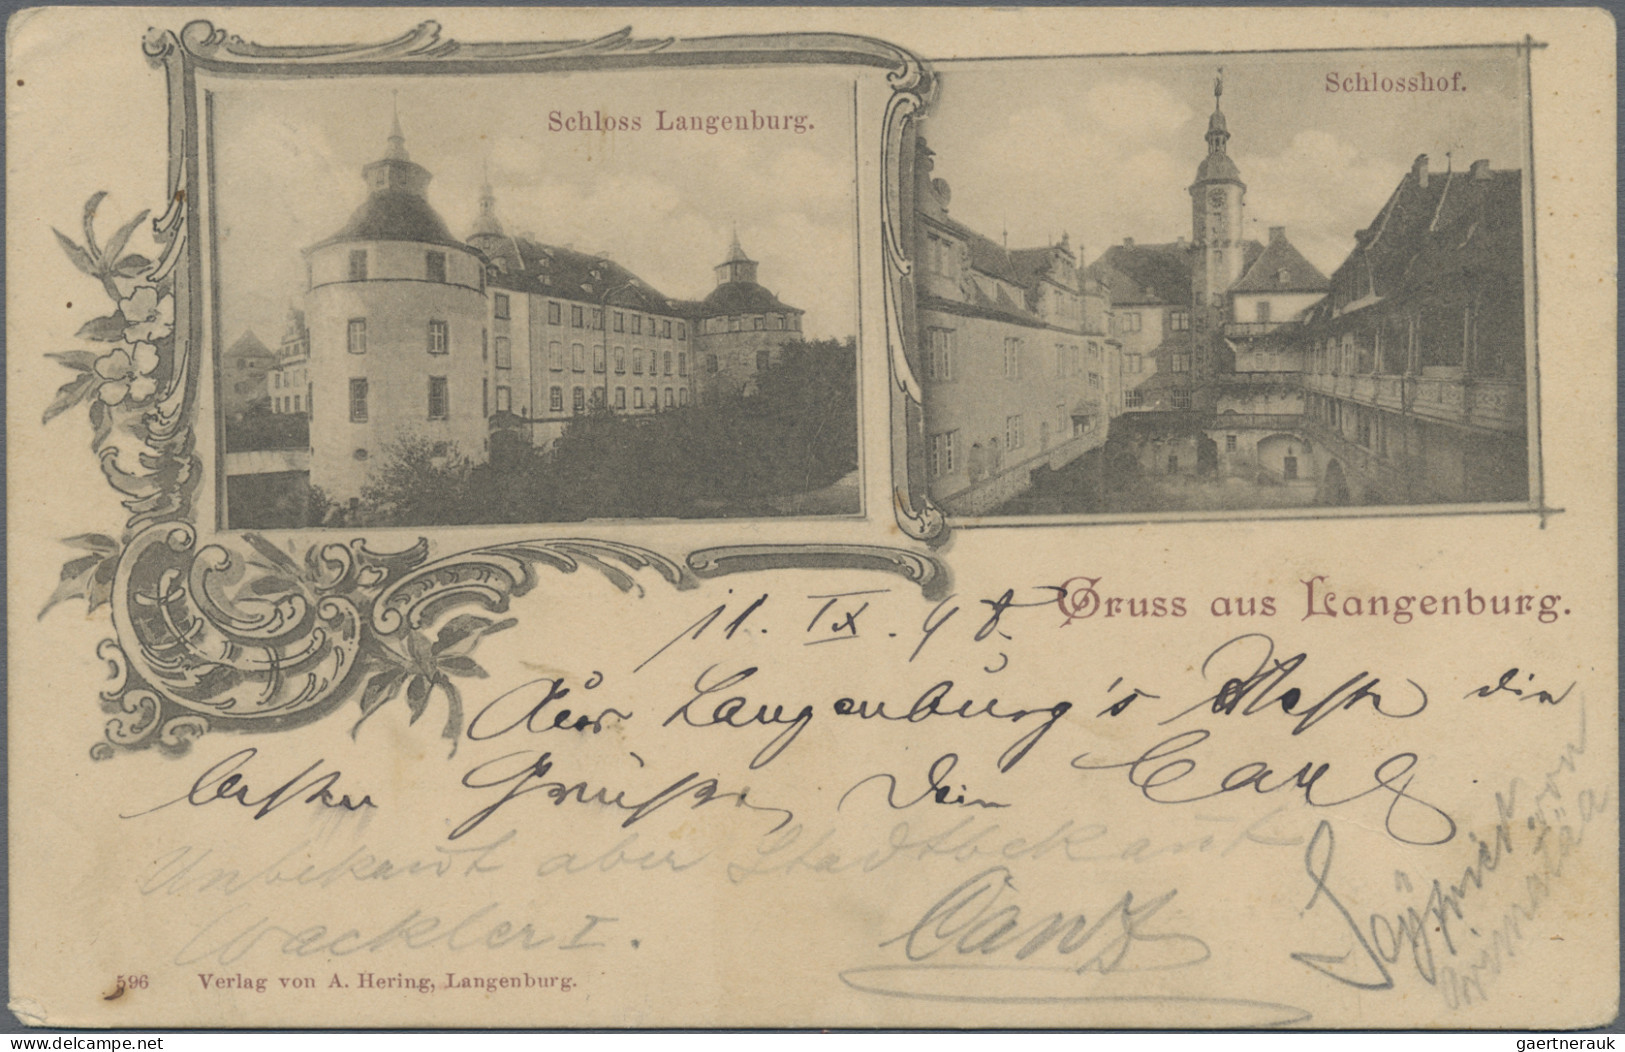 Schloss Langenburg.
Schlosshof.
Gruss aus Langenburg.
11. IX. 98.
Aus Langenburg's Veste die
besten Grüße, Dein Carl
Unbekannt aber Stadtbekannt
Wackler I.
596 Verlag von A. Hering, Langenburg.
delcampe.net
gaertnerauk